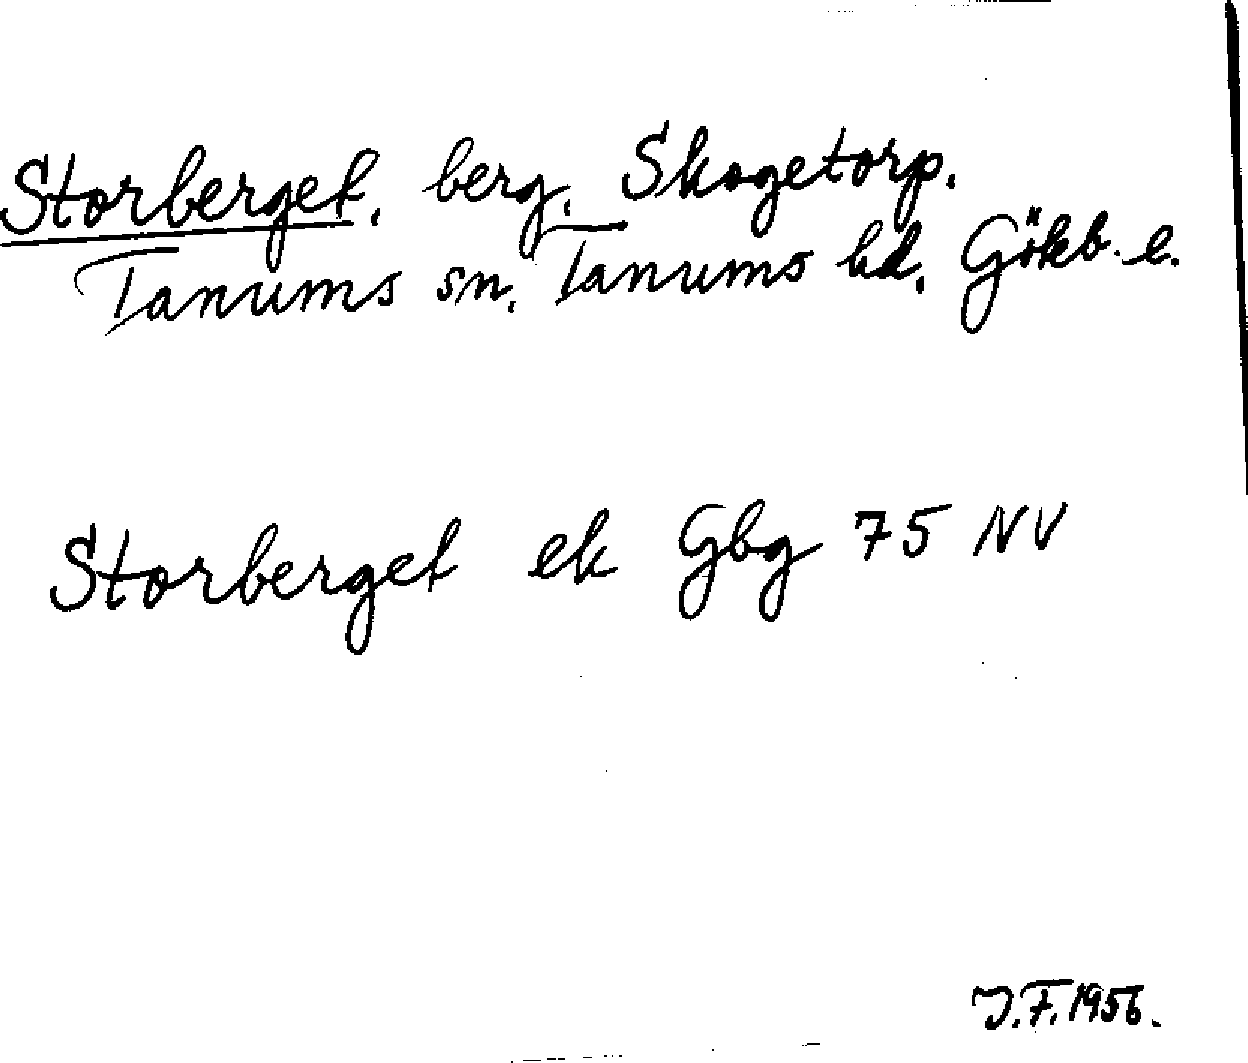 Storberget, berg, Skogetorp.
Tanums sn. Tanums hd. Gökb. l.
Storberget ek Gbg 75 NV
J.F. 1956.